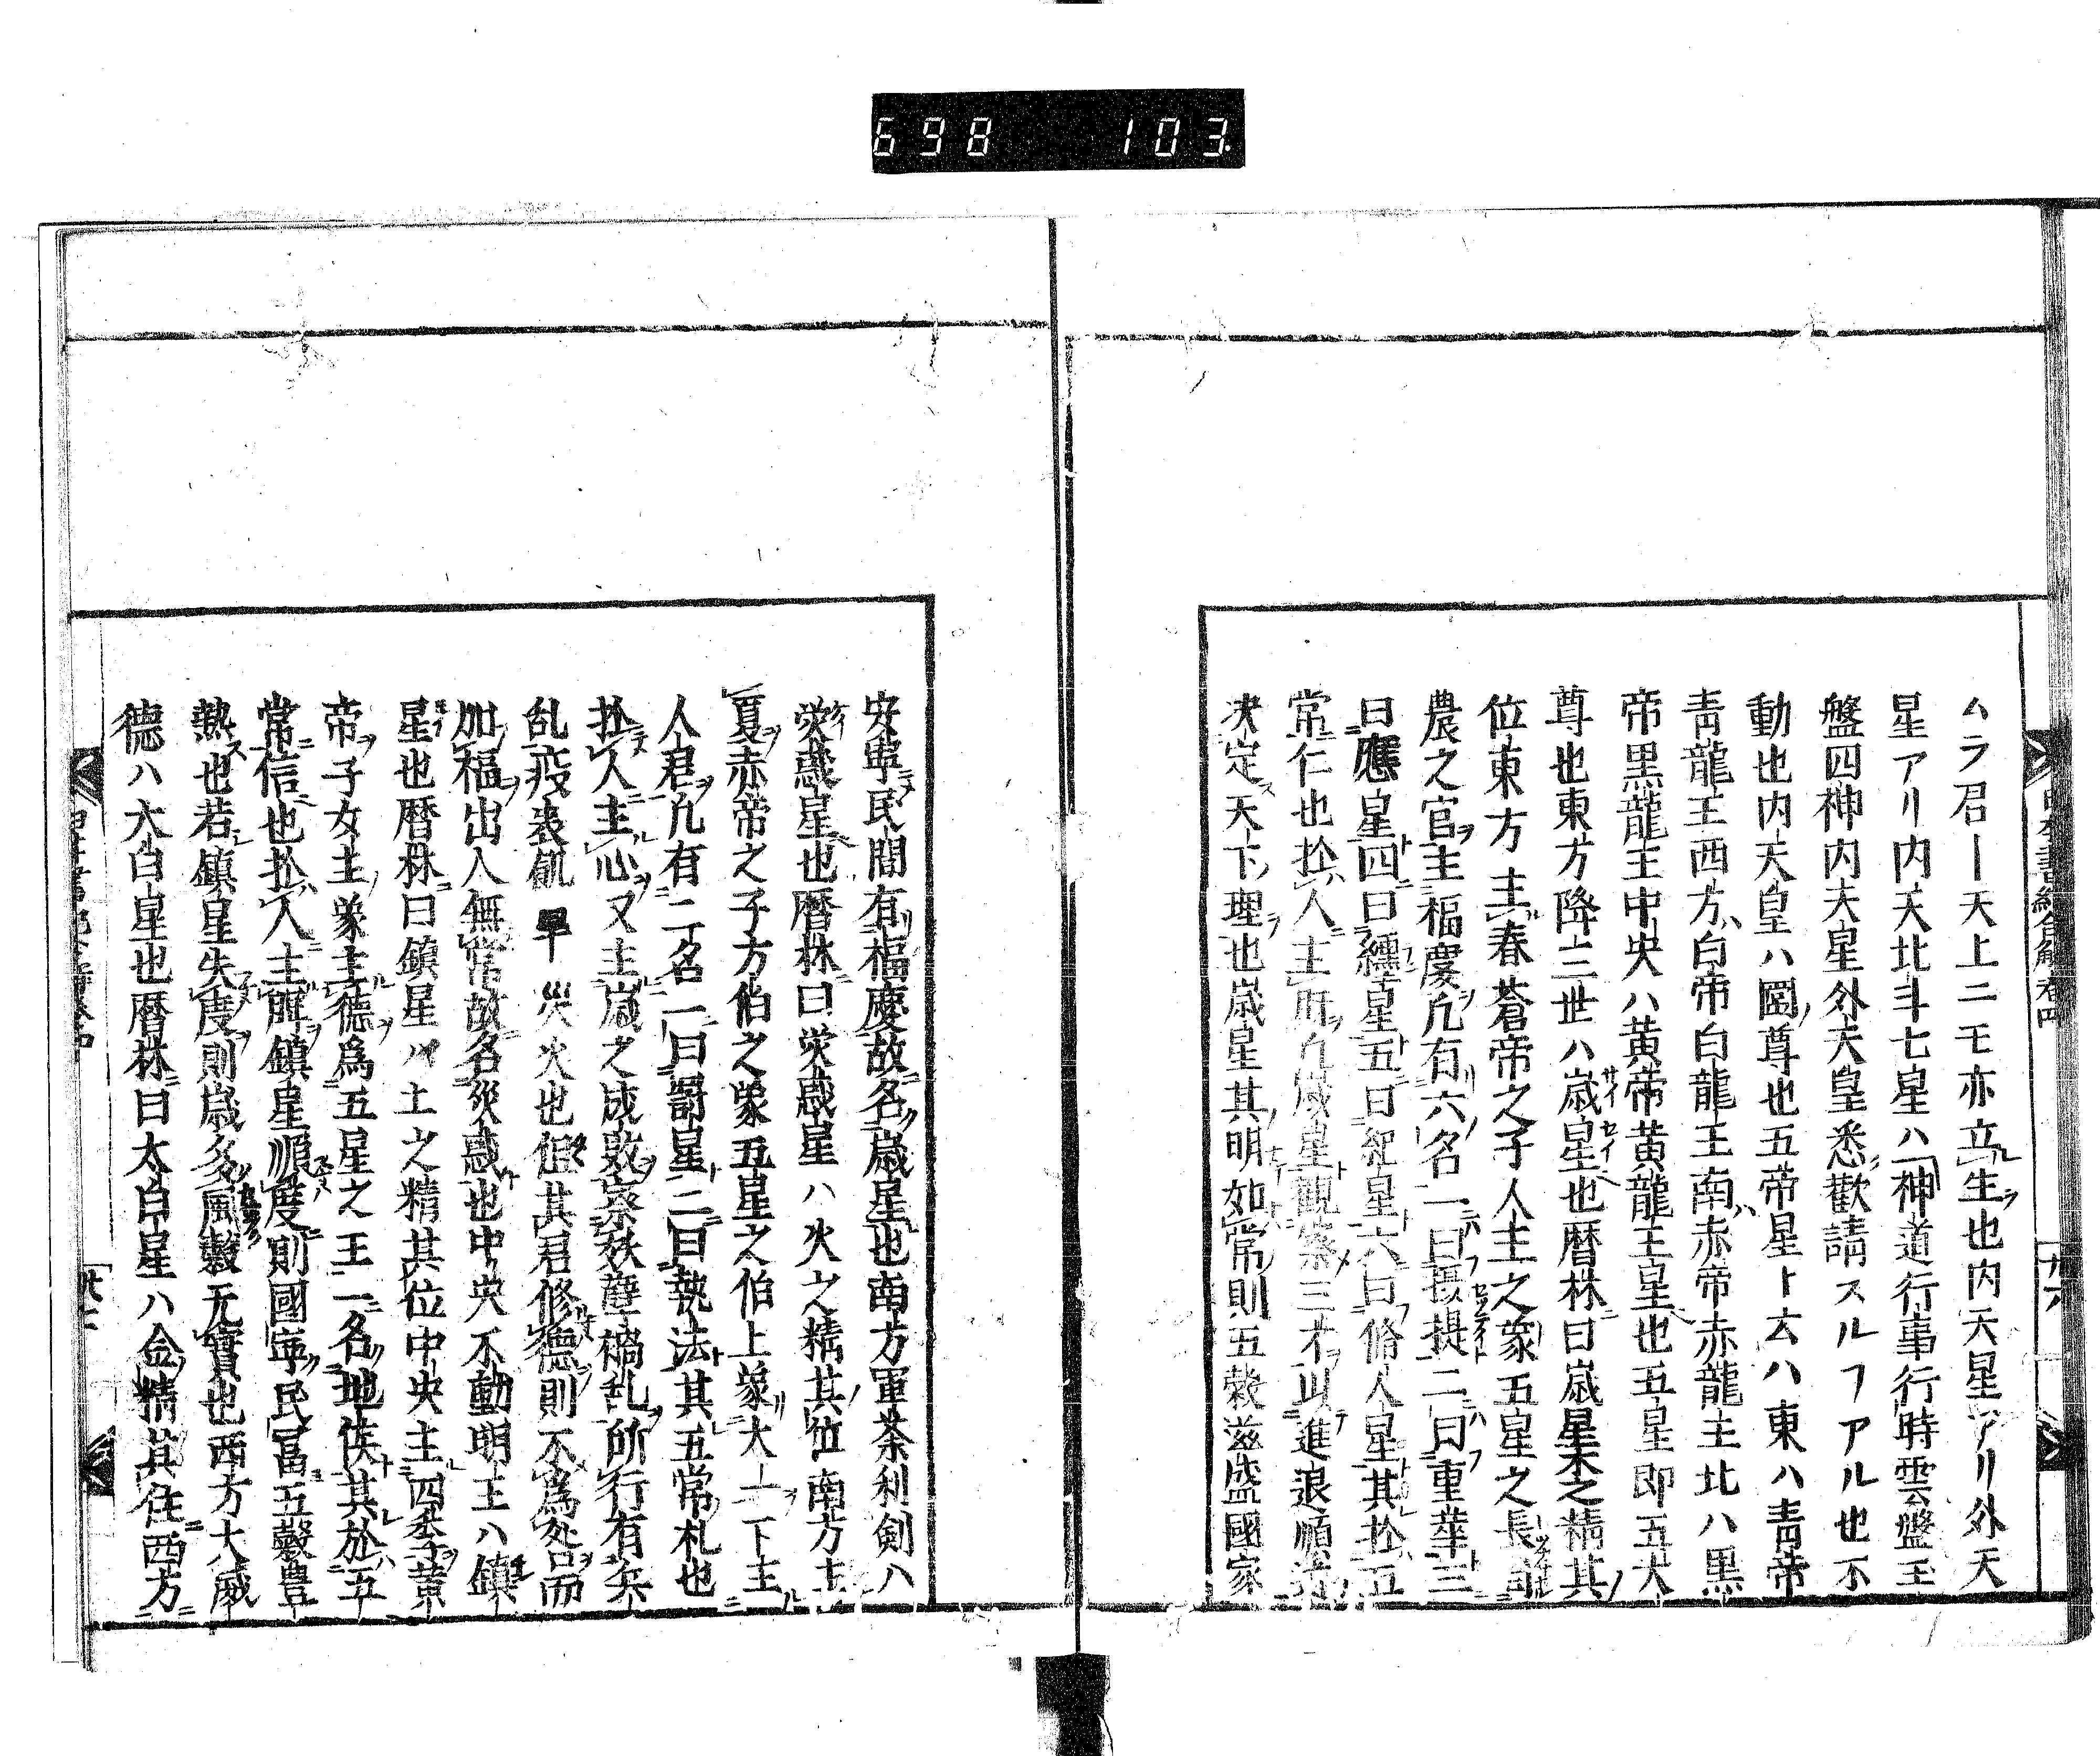 698 103
ムラ君ー天上ニモ亦立生也内天星アリ外天
星アリ内天北斗七星ハ神道行事行時雲盤玉
盤四神内天星外天皇悉歡請スルフアル也不
動也内天皇ハ圀尊也五帝星ト云ハ東ハ青帝
青龍王西方白帝白龍王南赤帝赤龍主北ハ黒
帝黒龍王中央ハ黄帝黄龍王皇也五星即五大
尊也東方降三世ハ歳星也暦林曰歳星木之精其
位東方主春蒼帝之子人主之象五星之長司
農之官主福慶凢有六名一曰摂提二曰重華三
曰應星四曰纏星五曰紀星六曰脩人星其於五
常仁也於人主所凢歳星觀察三才以進退順行
决定天下理也歳星其明如常則五穀滋盛國家
安寧民間有福慶故名歳星也南方軍荼利剣ハ
熒惑星也暦林曰熒惑星ハ火之精其位南方主
夏赤帝之子方伯之象五星之伯上象大十下主
人君凢有二名一曰罰星二曰執法其五常礼也
於人主心又主歳之成敗察妖孽禍乱所行有兵
乱疫喪飢旱災火也但其君修德則不為咎而
加福出入無常故名熒惑也中央不動明王ハ鎮
星也暦林曰鎮星ハ土之精其位中央主四季黄
帝子女主象主德為五星之王一名地侯其於五
常信也於人主脾鎮星順度則國寧民冨五穀豊
熟也若鎮星失度則歳多風穀无實也西方大威
德ハ大白星也暦林曰太白星ハ金精其住西方